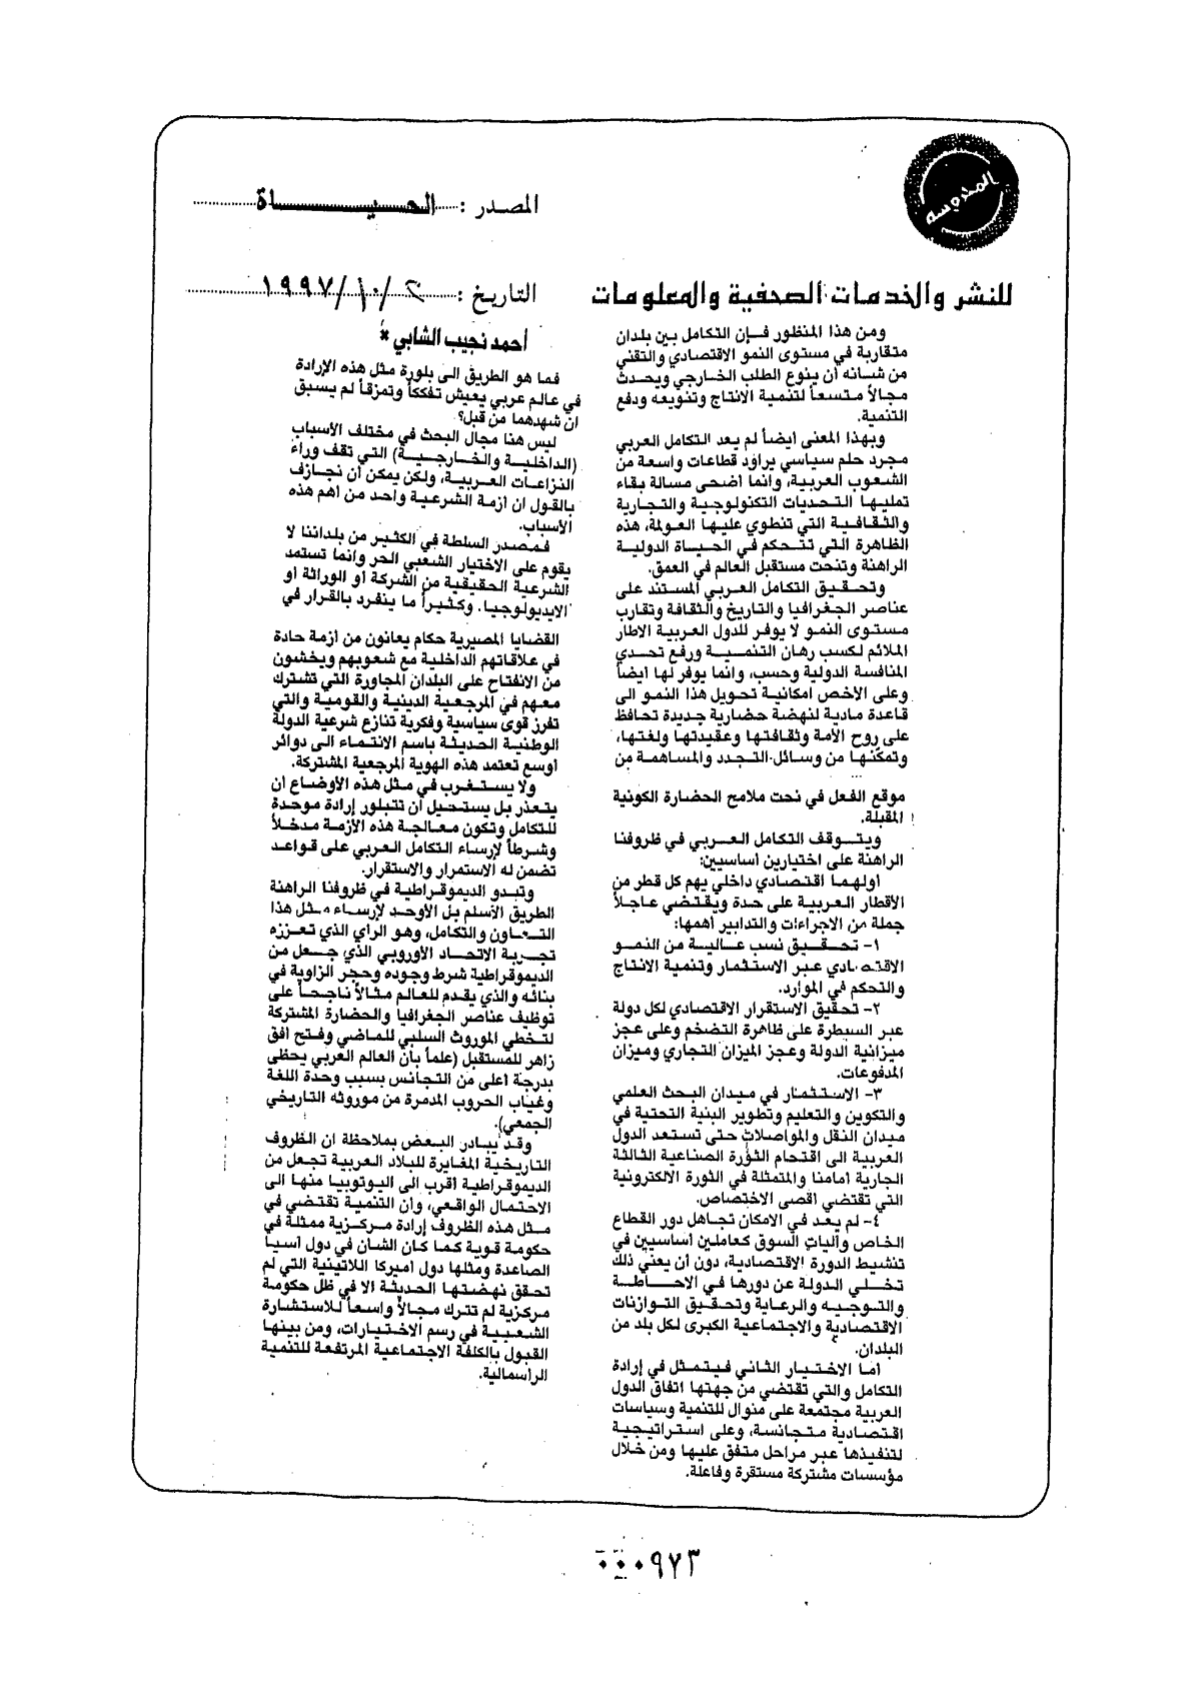 المحروسة
المصدر : الحيـــــاة
للنشر والخدمات الصحفية والمعلومات
التاريخ : ٢٠/١٠/١٩٩٧
ومن هذا المنظور فإن التكامل بين بلدان
متقاربة في مستوى النمو الاقتصادي والتقني
من شانه أن ينوع الطلب الخارجي ويحدث
مجالاً متسعاً لتنمية الانتاج وتنويعه ودفع
التنمية.
وبهذا المعنى ايضاً لم يعد التكامل العربي
مجرد حلم سياسي يراود قطاعات واسعة من
الشعوب العربية، وانما اضحى مسالة بقاء
تمليها التحديات التكنولوجية والتجارية
والثقافية التي تنطوي عليها العولمة، هذه
الظاهرة التي تتحكم في الحياة الدولية
الراهنة وتنحت مستقبل العالم في العمق.
وتحقيق التكامل العربي المستند على
عناصر الجغرافيا والتاريخ والثقافة وتقارب
مستوى النمو لا يوفر للدول العربية الاطار
الملائم لكسب رهان التنمية ورفع تحدي
المنافسة الدولية وحسب، وانما يوفر لها ايضاً
وعلى الأخص امكانية تحويل هذا النمو الى
قاعدة مادية لنهضة حضارية جديدة تحافظ
على روح الأمة وثقافتها وعقيدتها ولغتها،
وتمكّنها من وسائل التجدد والمساهمة من
موقع الفعل في نحت ملامح الحضارة الكونية
المقبلة.
ويتوقف التكامل العربي في ظروفنا
الراهنة على اختيارين اساسيين:
اولهما اقتصادي داخلي يهم كل قطر من
الأقطار العربية على حدة ويقتضي عاجلاً
جملة من الاجراءات والتدابير أهمها:
١- تحقيق نسب عالية من النمو
الاقتصادي عبر الاستثمار وتنمية الانتاج
والتحكم في الموارد.
٢- تحقيق الاستقرار الاقتصادي لكل دولة
عبر السيطرة على ظاهرة التضخم وعلى عجز
ميزانية الدولة وعجز الميزان التجاري وميزان
المدفوعات.
٣- الاستثمار في ميدان البحث العلمي
والتكوين والتعليم وتطوير البنية التحتية في
ميدان النقل والمواصلات حتى تستعد الدول
العربية الى اقتحام الثورة الصناعية الثالثة
الجارية أمامنا والمتمثلة في الثورة الالكترونية
التي تقتضي أقصى الاختصاص.
٤- لم يعد في الامكان تجاهل دور القطاع
الخاص وآليات السوق كعاملين أساسيين في
تنشيط الدورة الاقتصادية، دون أن يعني ذلك
تخلي الدولة عن دورها في الاحاطة
والتوجيه والرعاية وتحقيق التوازنات
الاقتصادية والاجتماعية الكبرى لكل بلد من
البلدان.
أما الاختيار الثاني فيتمثل في إرادة
التكامل والتي تقتضي من جهتها اتفاق الدول
العربية مجتمعة على منوال للتنمية وسياسات
اقتصادية متجانسة، وعلى استراتيجية
لتنفيذها عبر مراحل متفق عليها ومن خلال
مؤسسات مشتركة مستقرة وفاعلة.
أحمد نجيب الشابي *
فما هو الطريق الى بلورة مثل هذه الإرادة
في عالم عربي يعيش تفككاً وتمزقاً لم يسبق
ان شهدهما من قبل؟
ليس هنا مجال البحث في مختلف الأسباب
(الداخلية والخارجية) التي تقف وراء
النزاعات العربية، ولكن يمكن أن نجازف
بالقول ان أزمة الشرعية واحد من أهم هذه
الأسباب.
فمصدر السلطة في الكثير من بلداننا لا
يقوم على الاختيار الشعبي الحر وانما تستمد
الشرعية الحقيقية من الشركة أو الوراثة أو
الايديولوجيا. وكثيراً ما ينفرد بالقرار في
القضايا المصيرية حكام يعانون من أزمة حادة
في علاقاتهم الداخلية مع شعوبهم ويخشون
من الانفتاح على البلدان المجاورة التي تشترك
معهم في المرجعية الدينية والقومية والتي
تفرز قوى سياسية وفكرية تنازع شرعية الدولة
الوطنية الحديثة باسم الانتماء الى دوائر
أوسع تعتمد هذه الهوية المرجعية المشتركة.
ولا يستغرب في مثل هذه الأوضاع ان
يتعذر بل يستحيل أن تتبلور إرادة موحدة
للتكامل وتكون معالجة هذه الأزمة مدخلاً
وشرطاً لإرساء التكامل العربي على قواعد
تضمن له الاستمرار والاستقرار.
وتبدو الديموقراطية في ظروفنا الراهنة
الطريق الأسلم بل الأوحد لإرساء مثل هذا
التعاون والتكامل، وهو الرأي الذي تعززه
تجربة الاتحاد الأوروبي الذي جعل من
الديموقراطية شرط وجوده وحجر الزاوية في
بنائه والذي يقدم للعالم مثالاً ناجحاً على
توظيف عناصر الجغرافيا والحضارة المشتركة
لتخطي الموروث السلبي للماضي وفتح افق
زاهر للمستقبل (علماً بأن العالم العربي يحظى
بدرجة أعلى من التجانس بسبب وحدة اللغة
وغياب الحروب المدمرة من موروثه التاريخي
الجمعي).
وقد يبادر البعض بملاحظة ان الظروف
التاريخية المغايرة للبلاد العربية تجعل من
الديموقراطية أقرب الى اليوتوبيا منها الى
الاحتمال الواقعي، وأن التنمية تقتضي في
مثل هذه الظروف إرادة مركزية ممثلة في
حكومة قوية كما كان الشان في دول آسيا
الصاعدة ومثلها دول اميركا اللاتينية التي لم
تحقق نهضتها الحديثة الا في ظل حكومة
مركزية لم تترك مجالاً واسعاً للاستشارة
الشعبية في رسم الاختيارات، ومن بينها
القبول بالكلفة الاجتماعية المرتفعة للتنمية
الراسمالية.
٠٠٠٩٧٣